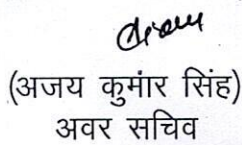 (अजय कुमांर सिंह)
अवर सचिव